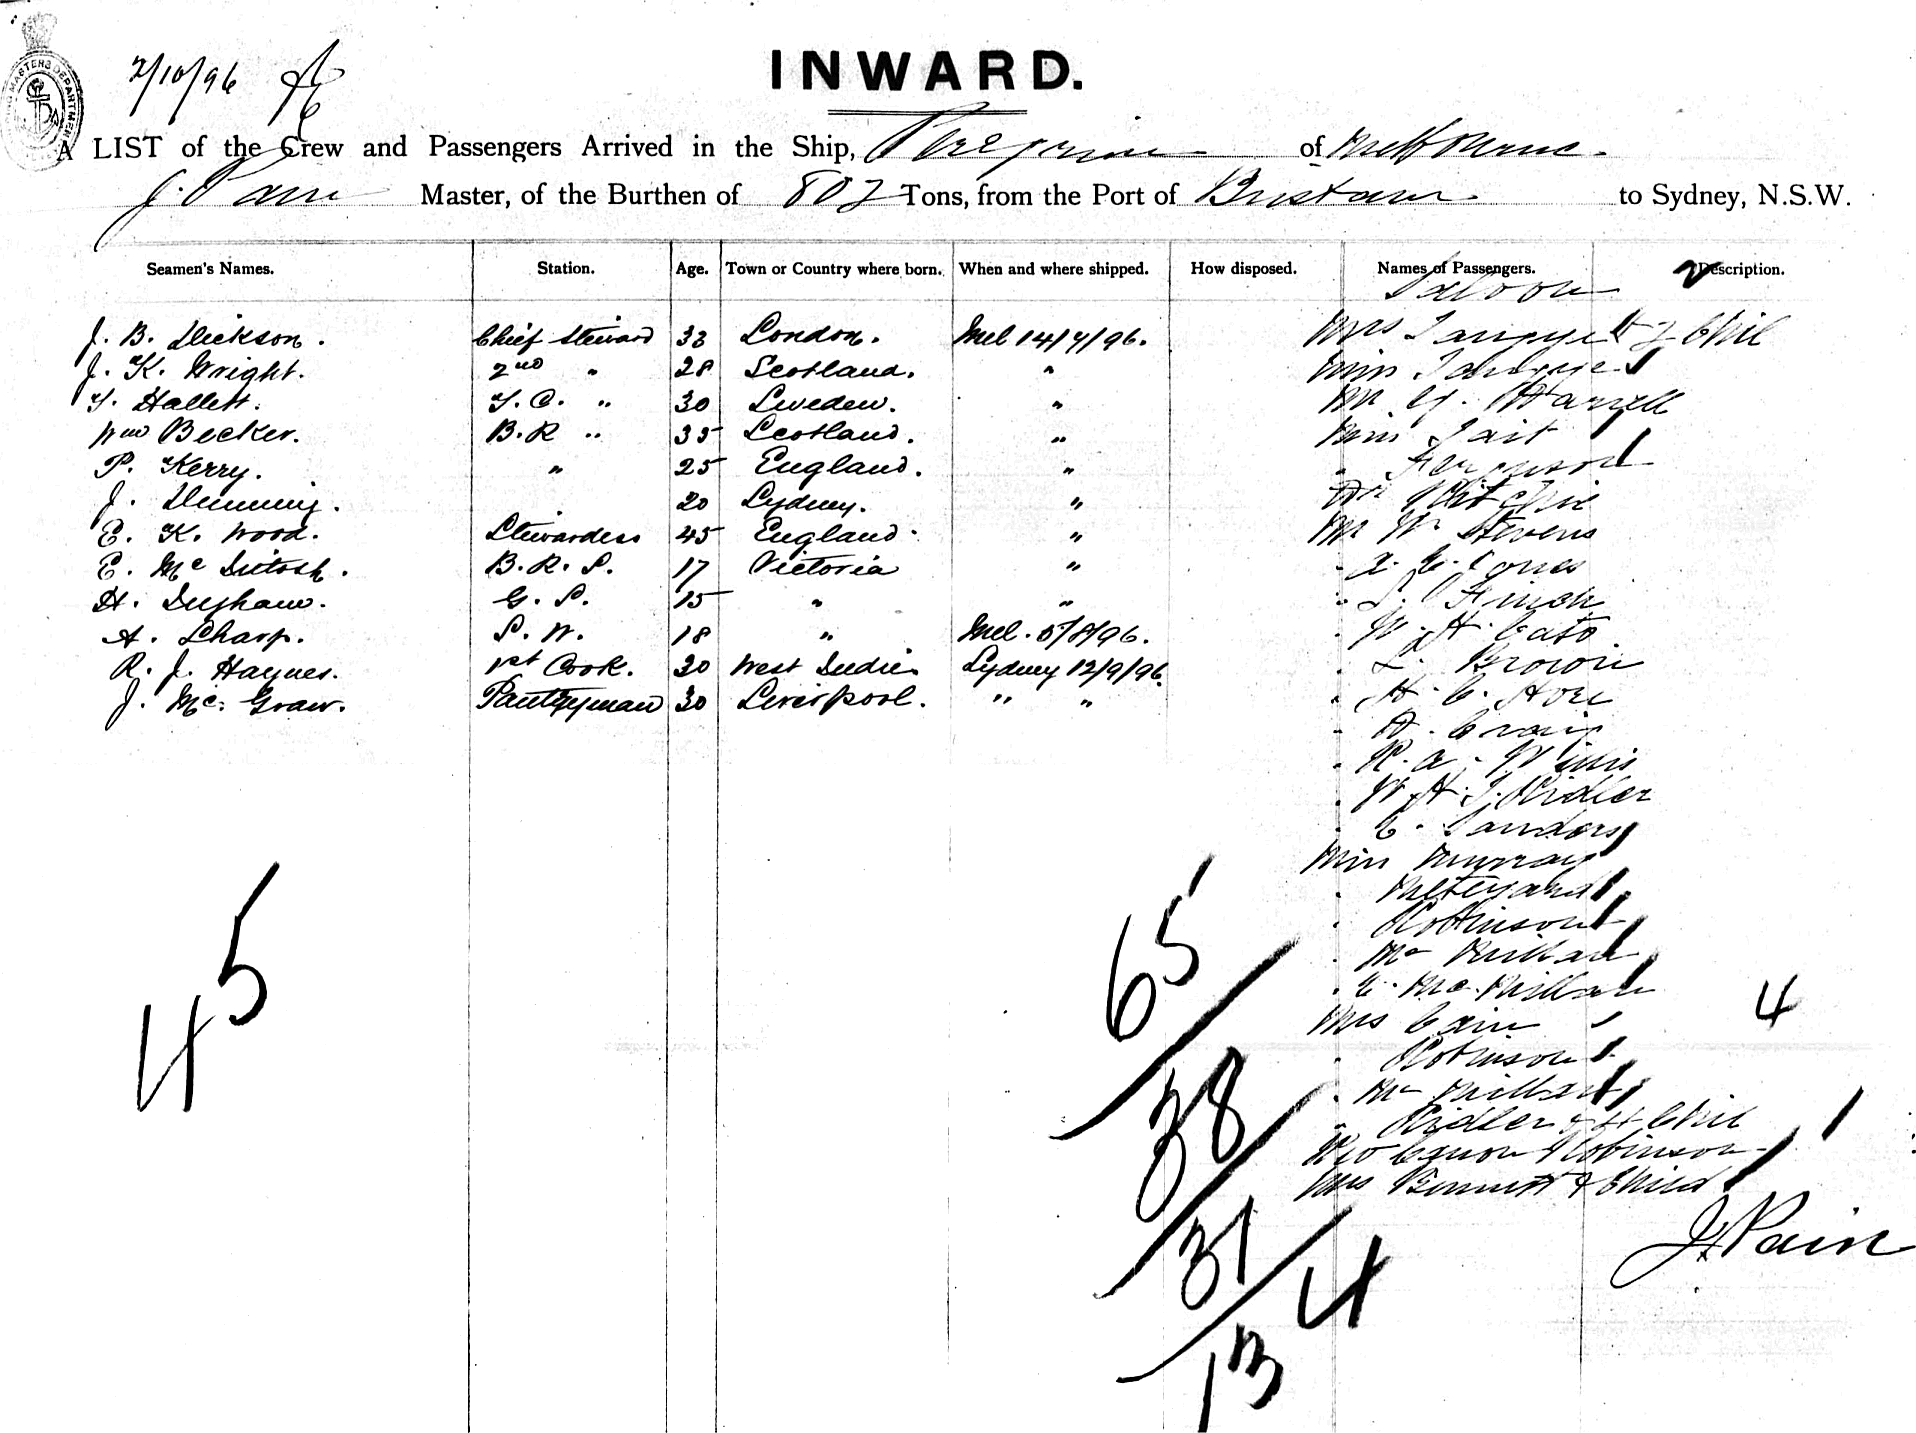 2/10/96
INWARD.
A LIST of the Crew and Passengers Arrived in the Ship, Peregrine of Melbourne
J. Pain Master, of the Burthen of 802 Tons, from the Port of Brisbane to Sydney, N.S.W.
Seamen's Names. Station. Age. Town or Country where born. When and where shipped. How disposed. Names of Passengers. Description.
Saloon 2
J. B. Dickson. Chief Steward 33 London. Mel 14/7/96. Mrs Tangye & 2 Chil
J. K. Wright. 2nd " 28 Scotland. " Miss Tangye
T. Hallett. S.C. " 30 Sweden. " Mr G. Harrell
Wm Becker. B.R " 35 Scotland. " Miss Tait
P. Kerry. " 25 England. " " Ferguson
J. Dimmig. 20 Sydney. " Dr Ritchie
E. K. Wood. Stewardess 45 England. " Mr W. Stevens
E. Mc Intosh. B.R.S. 17 Victoria " " A. E. Jones
H. Dugham. G. S. 15 " " " S. Finch
A. Sharp. S. W. 18 " Mel. 5/8/96. " W. H. Cato
R. J. Haynes. 1st Cook. 30 West Indies Sydney 12/9/96. " L. Brown
J. Mc. Graw. Pantryman 30 Liverpool. " " " H. C. Hore
" A. Craig
" R. A. Willis
" W. H. T. Ridler
" C. Sanders
Miss Murray
" Meteyard
" Robinson
" Mc Millan
" E. Mc. Millan
Mrs Cain 4
" Robinson
" Mc Millan
" Ridler & 4 Chil
Rev Canon Robinson
Mrs Bennett & Child
J. Pain
45
65
38
31
13
4